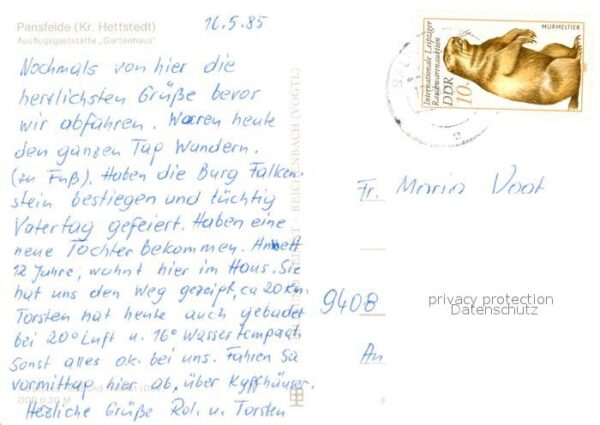 Pansfelde (Kr. Hettstedt)
Ausflugsgaststätte „Gartenhaus"
16.5.85
Nochmals von hier die
herzlichsten Grüße bevor
wir abfahren. Waren heute
den ganzen Tag Wandern.
(zu Fuß). Haben die Burg Falken-
stein bestiegen und tüchtig
Vatertag gefeiert. Haben eine
neue Tochter bekommen. Annett
12 Jahre, wohnt hier im Haus. Sie
hat uns den Weg gezeigt, ca 20 km.
Torsten hat heute auch gebadet
bei 20° Luft u. 16° Wassertemperatur
Sonst alles ok. bei uns. Fahren Sa
vormittag hier ab, über Kyffhäuser.
Herzliche Grüße Rol. u. Torsten
REICHENBACH (VOGTL)
MURMELTIER
Internationale Leipziger
Rauchwarenauktion
DDR 10
Fr. Maria Voat
9408
privacy protection
Datenschutz
Au